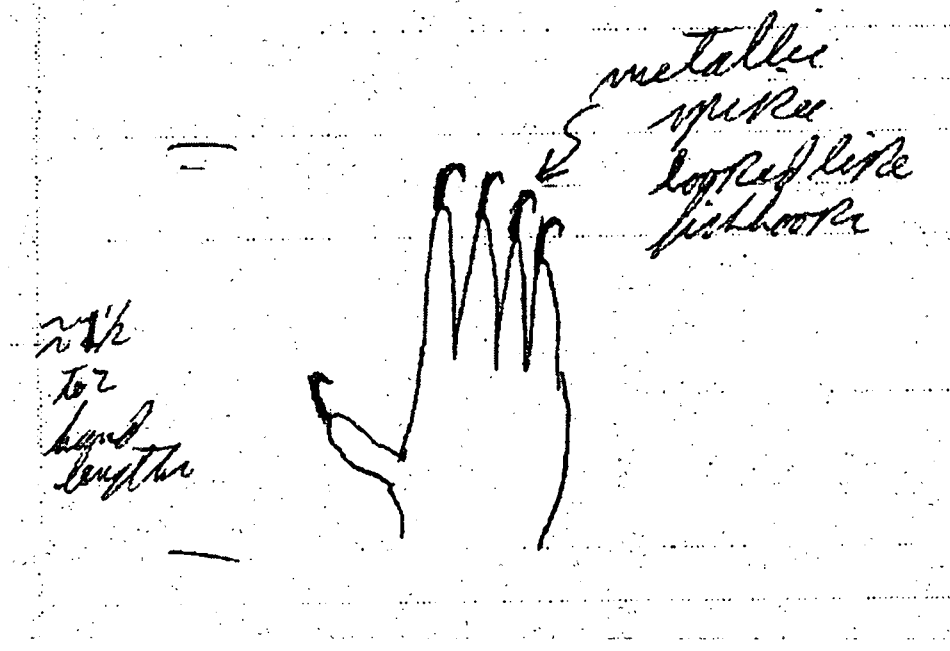 metallic
spikes
looked like
fishhooks
~ 1 1/2
to 2
hand
lengths